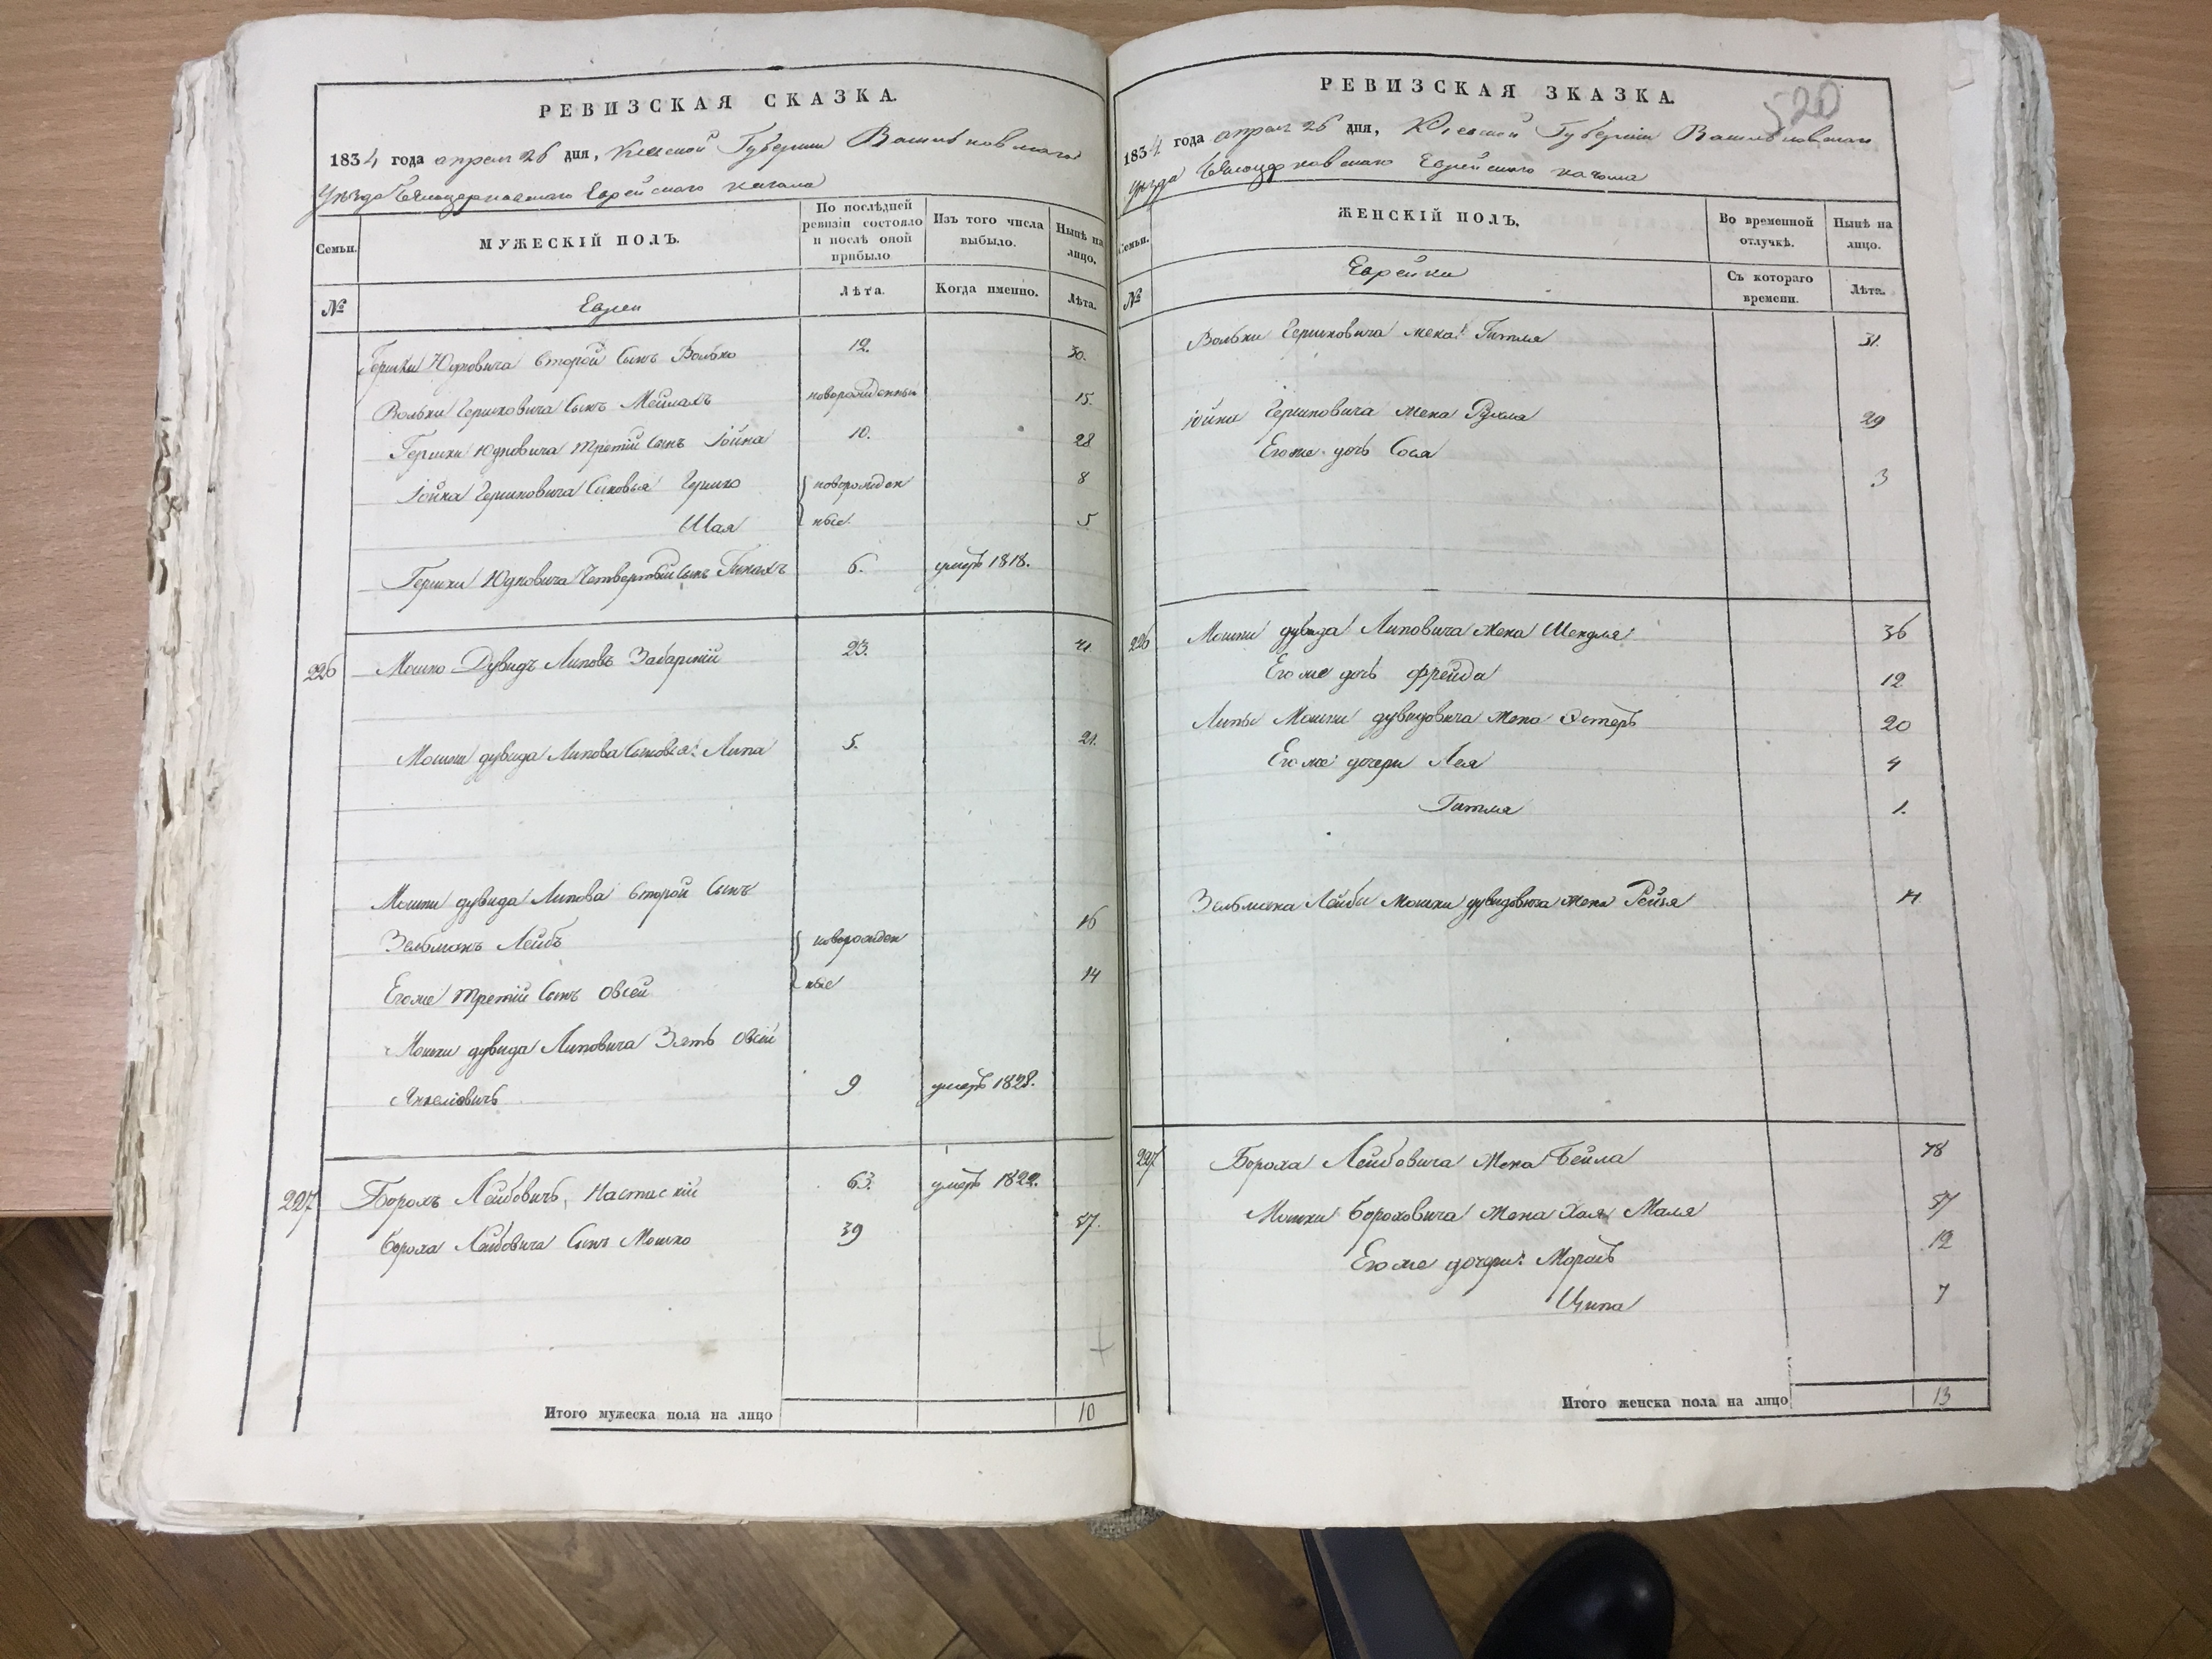 РЕВИЗСКАЯ СКАЗКА.
1834 года апреля 26 дня, Киевской Губернии Васильковскаго
Уезда Белоцерковскаго Еврейскаго кагала
Семьи.
МУЖЕСКІЙ ПОЛЪ.
По послѣдней ревизіи состояло и послѣ оной прибыло
Изъ того числа выбыло.
Нынѣ на лицо.
№
Евреи
Лѣта.
Когда именно.
Лѣта.
Гершки Юдковича второй сынъ Волько 12. 30.
Вольки Гершковича сынъ Мейлахъ новорожденный 15.
Гершки Юдковича третій сынъ Іойна 10. 28
Іойна Гершковича сыновья Гершко новорожден 8
Шая ные 5
Гершки Юдковича четвертый сынъ Пинахъ 6. умеръ 1818.
226 Мошко Дувидъ Липовъ Забарскій 23. 41
Мошки дувида Липова сыновья: Липа 5. 21.
Мошки дувида Липова второй сынъ
Зельманъ Лейбъ новорожден 16
Егоже третій сынъ Овсей ные 14
Мошки дувида Липовича Зять Овсій
Янкелювичъ 9 умеръ 1828.
227 Борохъ Лейбовичъ, 63. умеръ 1822.
Бороха Лейбовича сынъ Мошко 39 57.
Итого мужеска пола на лицо 10
РЕВИЗСКАЯ ЗКАЗКА.
520
1834 года апреля 26 дня, Киевской Губерніи Васильковскаго
Уезда Белоцерковскаго Еврейскаго кагала
Семьи.
ЖЕНСКІЙ ПОЛЪ.
Во временной отлучкѣ.
Нынѣ на лицо.
№
Еврейки
Съ котораго времени.
Лѣта.
Вольки Гершковича жена: Гитля 31.
Іойни Гершковича жена Рухля 29
Егоже дочь Сося 3
226 Мошки дувида Липовича жена Шендля 36
Егоже дочь фрейда 12
Липы Мошки дувидовича жена Эстеръ 20
Егоже дочери Лея 4
Гитля 1.
Зельмана Лейбы Мошки дувидовича жена Рейзя 17
227 Бороха Лейбовича жена Бейла 78
Мошки Бороховича жена Хая Маля 57
Егоже дочери: 12
Ципа 7
Итого женска пола на лицо 13